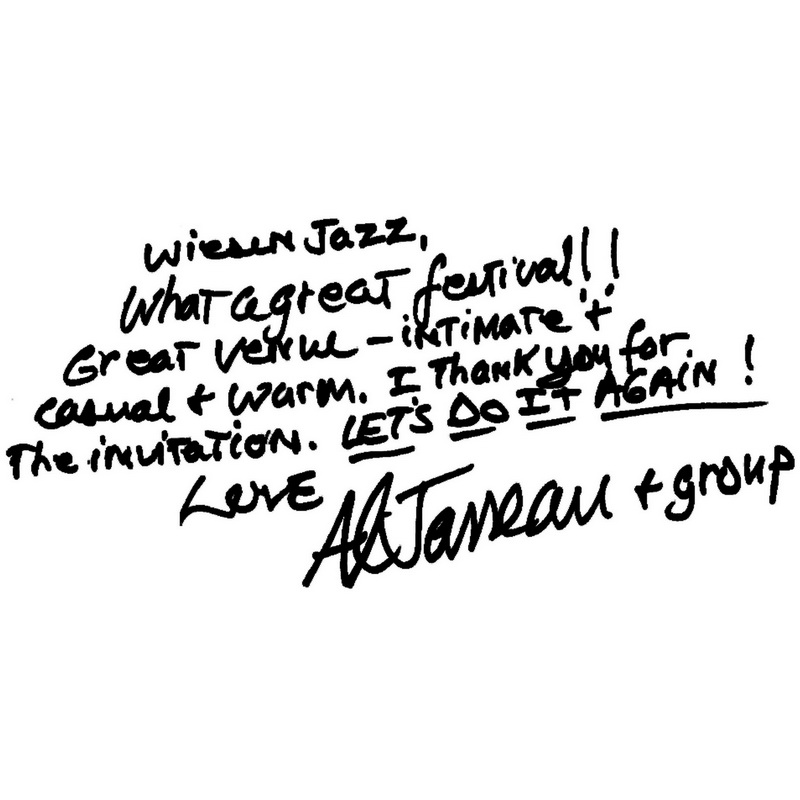 Wiesen Jazz,
What a great festival!!
Great venue - intimate +
casual + warm. I Thank you for
The invitation. LET'S DO IT AGAIN!
Love Al Jarreau + group